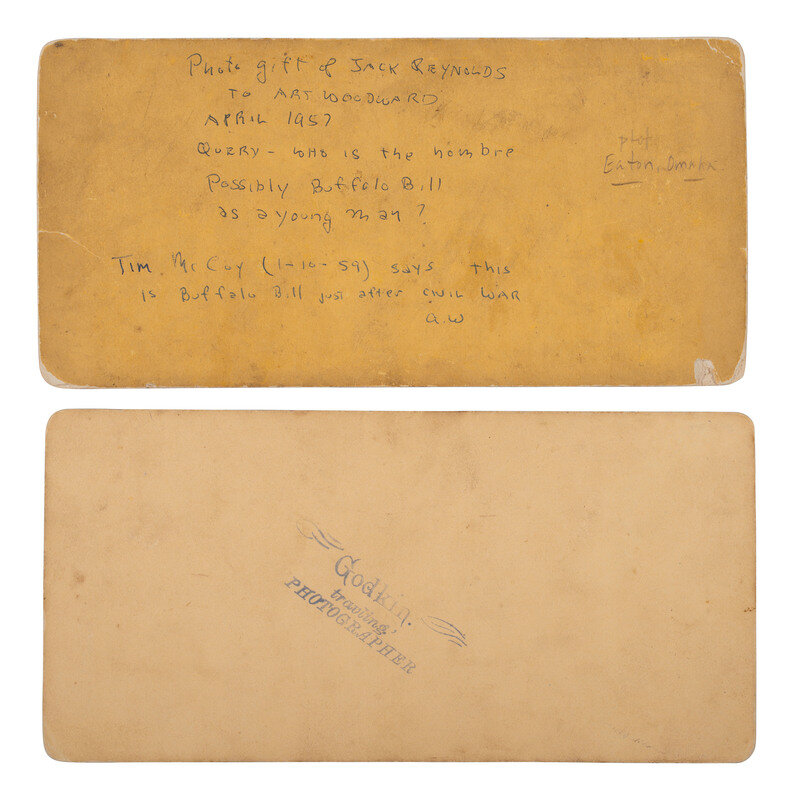 Photo gift of JACK REYNOLDS
TO ART WOODWARD
APRIL 1957
QUERY - WHO is the hombre
Possibly Buffalo Bill
as a young man?
TIM McCoy (1-10-59) says this
is Buffalo Bill just after CIVIL WAR
a.w
Eaton, Omaha
Godkin.
traveling,
PHOTOGRAPHER